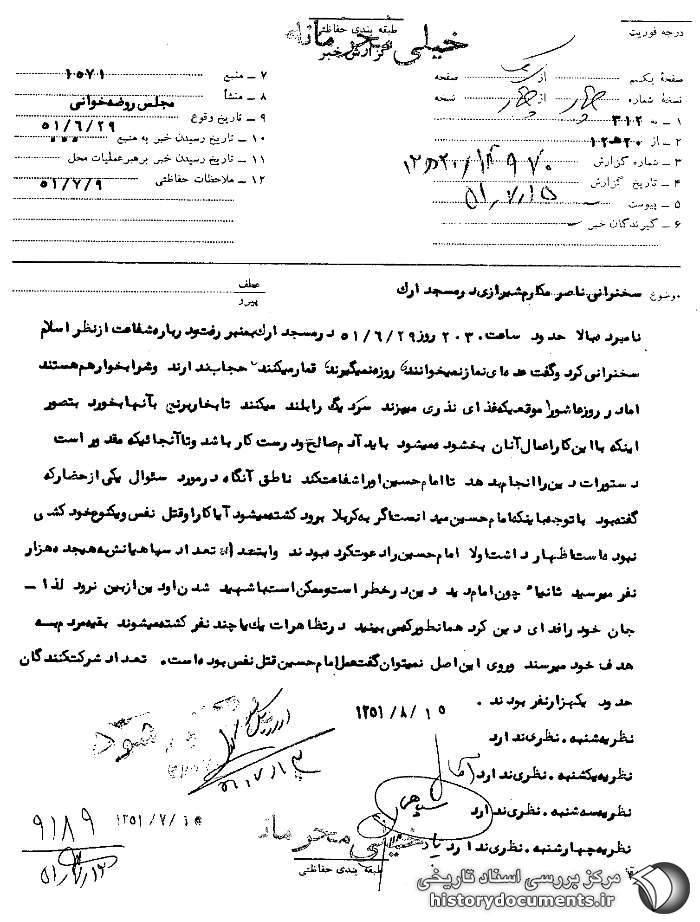 درجه فوریت
طبقه بندی حفاظتی
خیلی محرمانه
گزارش خبر
صفحه یکم از یک صفحه
نسخهٔ شماره چهار از چهار نسخه
۱ ـ به ۳۱۲
۲ ـ از ۲۰ هـ ۱۲
۳ ـ شماره گزارش
۴ ـ تاریخ گزارش
۵ ـ پیوست
۶ ـ گیرندگان خبر
۷ ـ منبع ۱۰۵۷۱
۸ ـ منشأ مجلس روضه‌خوانی
۹ ـ تاریخ وقوع ۵۱/۶/۲۹
۱۰ ـ تاریخ رسیدن خبر به منبع
۱۱ ـ تاریخ رسیدن خبر برهبر عملیات محل
۱۲ ـ ملاحظات حفاظتی ۵۱/۷/۹
موضوع سخنرانی ناصر مکارم شیرازی در مسجد ارک
عطف
پیرو
نامبرده بالا حدود ساعت ۲۰۳۰ روز ۵۱/۶/۲۹ در مسجد ارک بمنبر رفت و درباره شفاعت از نظر اسلام
سخنرانی کرد و گفت عده‌ای نماز نمیخوانند روزه نمیگیرند قمار میکنند حجاب ندارند و شرابخوار هم هستند
اما در روز عاشورا موقعیکه غذای نذری میپزند سر دیگ را بلند میکنند تا بخار برنج بآنها بخورد بتصور
اینکه با این کار اعمال آنان بخشوده میشود باید آدم صالح و درست کار باشد و تا آنجائیکه مقدور است
دستورات دین را انجام بدهد تا امام حسین او را شفاعت کند ناطق آنگاه در مورد سئوال یکی از حضار که
گفته بود با توجه باینکه امام حسین میدانست اگر به کربلا برود کشته میشود آیا کار او قتل نفس و یکنوع خود کشی
نبوده است اظهار داشت اولا امام حسین را دعوت کرده بودند و ابتدا تعداد سپاهیانش به هیجده هزار
نفر میرسید ثانیا چون امام دید دین در خطر است و ممکن است با شهید شدن او دین از بین نرود لذا ـ
جان خود را فدای دین کرد همانطور که می بینید در تظاهرات یک یا چند نفر کشته میشوند بقیه مردم به
هدف خود میرسند و روی این اصل نمیتوان گفت عمل امام حسین قتل نفس بوده است. تعداد شرکت کنندگان
حدود یکهزار نفر بودند .
نظریه شنبه . نظری ندارد
نظریه یکشنبه . نظری ندارد
نظریه سه شنبه . نظری ندارد
نظریه چهارشنبه . نظری ندارد
۱۳۵۱/۸/۱۵
۹۱۸۹
خیلی محرمانه
طبقه بندی حفاظتی
مرکز بررسی اسناد تاریخی
historydocuments.ir